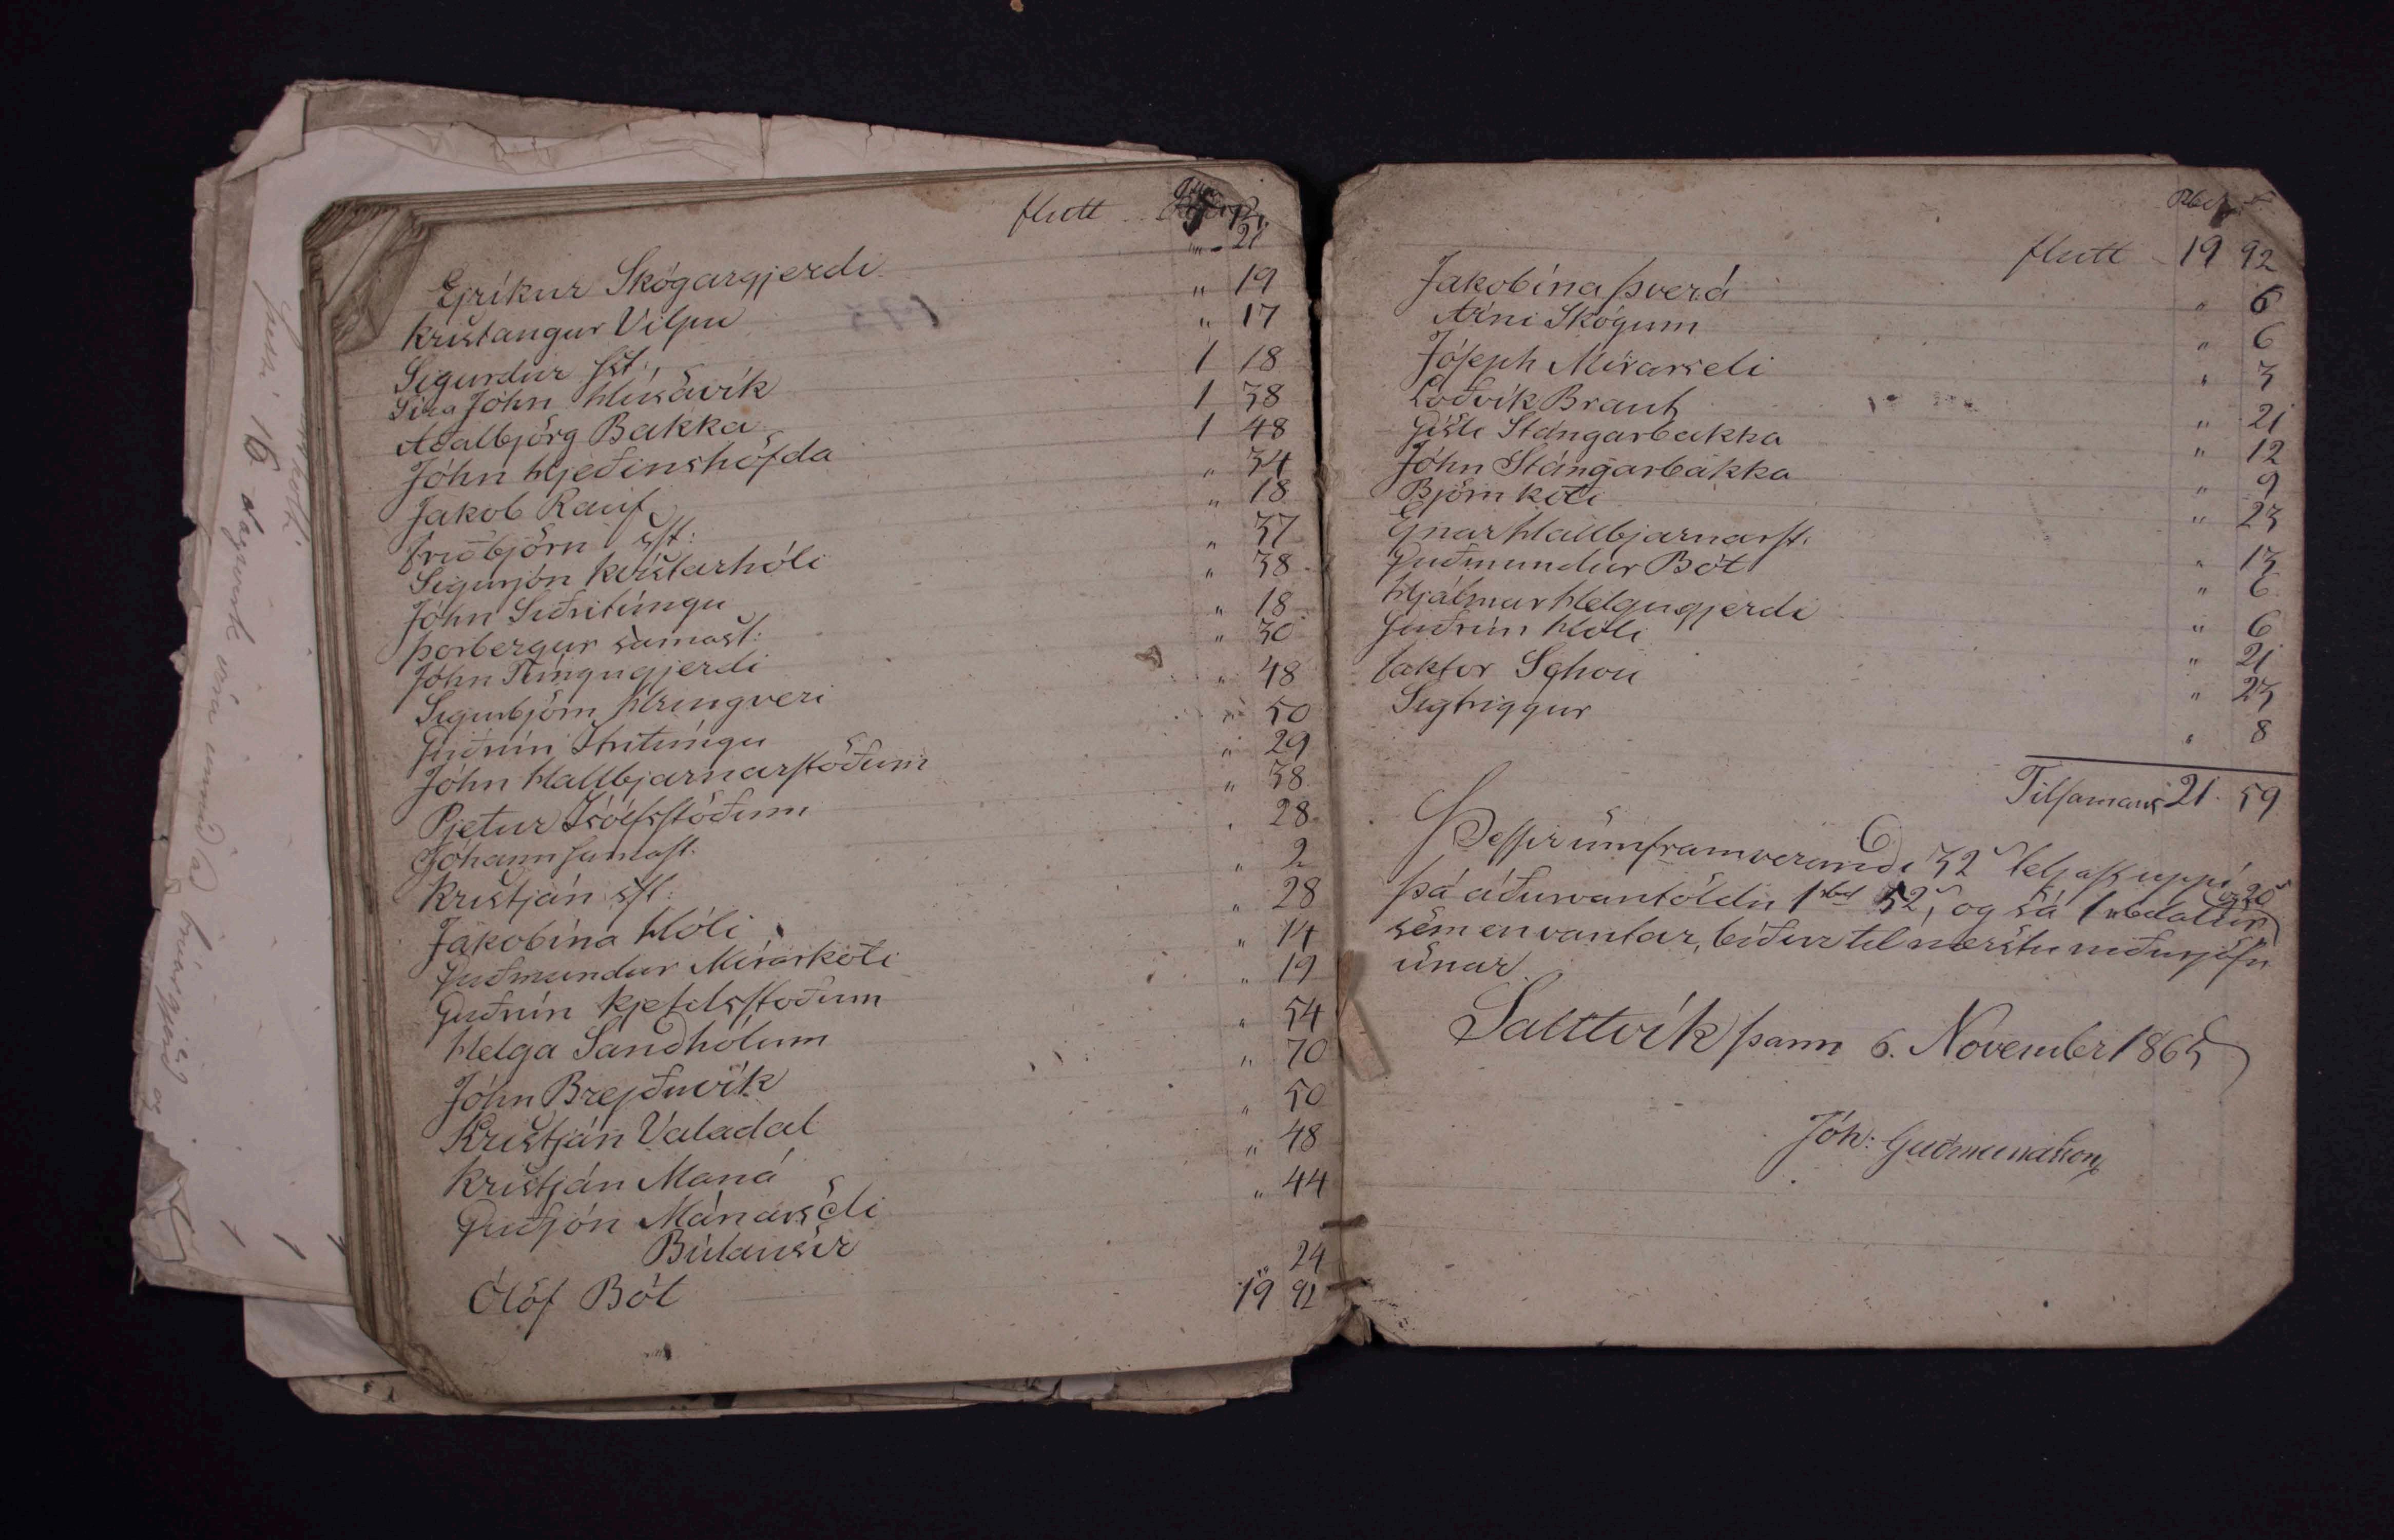 flutt
" 21
Ejríkur Skógargjerdi " 19
Kristangur Vilpu " 17
Sigurdur sst: 1 18
Síra Jóhn Húsavík 1 38
Adalbjörg Bakka 1 48
Jóhn Hjeðinshöfda " 34
Jakob Rauf " 18
Friðbjörn sst: " 37
Sigurjón Kvíslarhóli " 38
Jóhn Siðritúngu " 18
Þorbergur samast: " 30
Jóhn Túngugjerdi " 48
Sigurbjörn Hringveri " 50
Guðrún Itritúngu " 29
Jóhn Hallbjarnarstöðum " 38
Pjetur Ísólfsstöðum " 28
Jóhann samast. " 2
Kristján sst: " 28
Jakobína Hóli " 14
Guðmundur Mírarkoti " 19
Guðrún Kjetilsstöðum " 54
Helga Sandhólum " 70
Jóhn Brejðuvík " 50
Kristján Valadal " 48
Kristján Maná " 44
Guðjón Mánárseli
Búlausir
Ólöf Bót " 24
19 92
Rbd s
flutt 19 92
Jakobína Þverá " 6
Árni Skógum " 6
Jóseph Mírarseli " 3
Loðvík Braut " 21
Gísli Stángarbakka " 12
Jóhn Stángarbakka " 9
Björn Koti " 23
Ejnar Hallbjarnarst. " 13
Guðmundur Bót " 6
Hjálmar Helgugjerdi " 6
Guðrún Hóli " 21
faktor Schou " 23
Sigtriggur " 8
Tilsamans 21 59
Þessir umframverandi 32 s teljast uppí
þá áðurvantöldu 1 rbd 52 s, og sá 1 rbdalur og 20 s
sem en vantar, bíður til næstu niðurjöfn
unar.
Saltvík þann 6. November 1865
Jóh: Guðmundsson